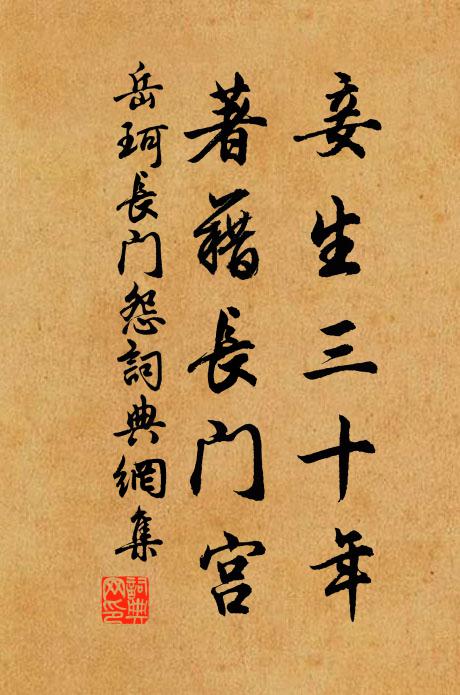 妾生三十年
著籍長门宫
岳珂長门怨詞典網集
詞典网印